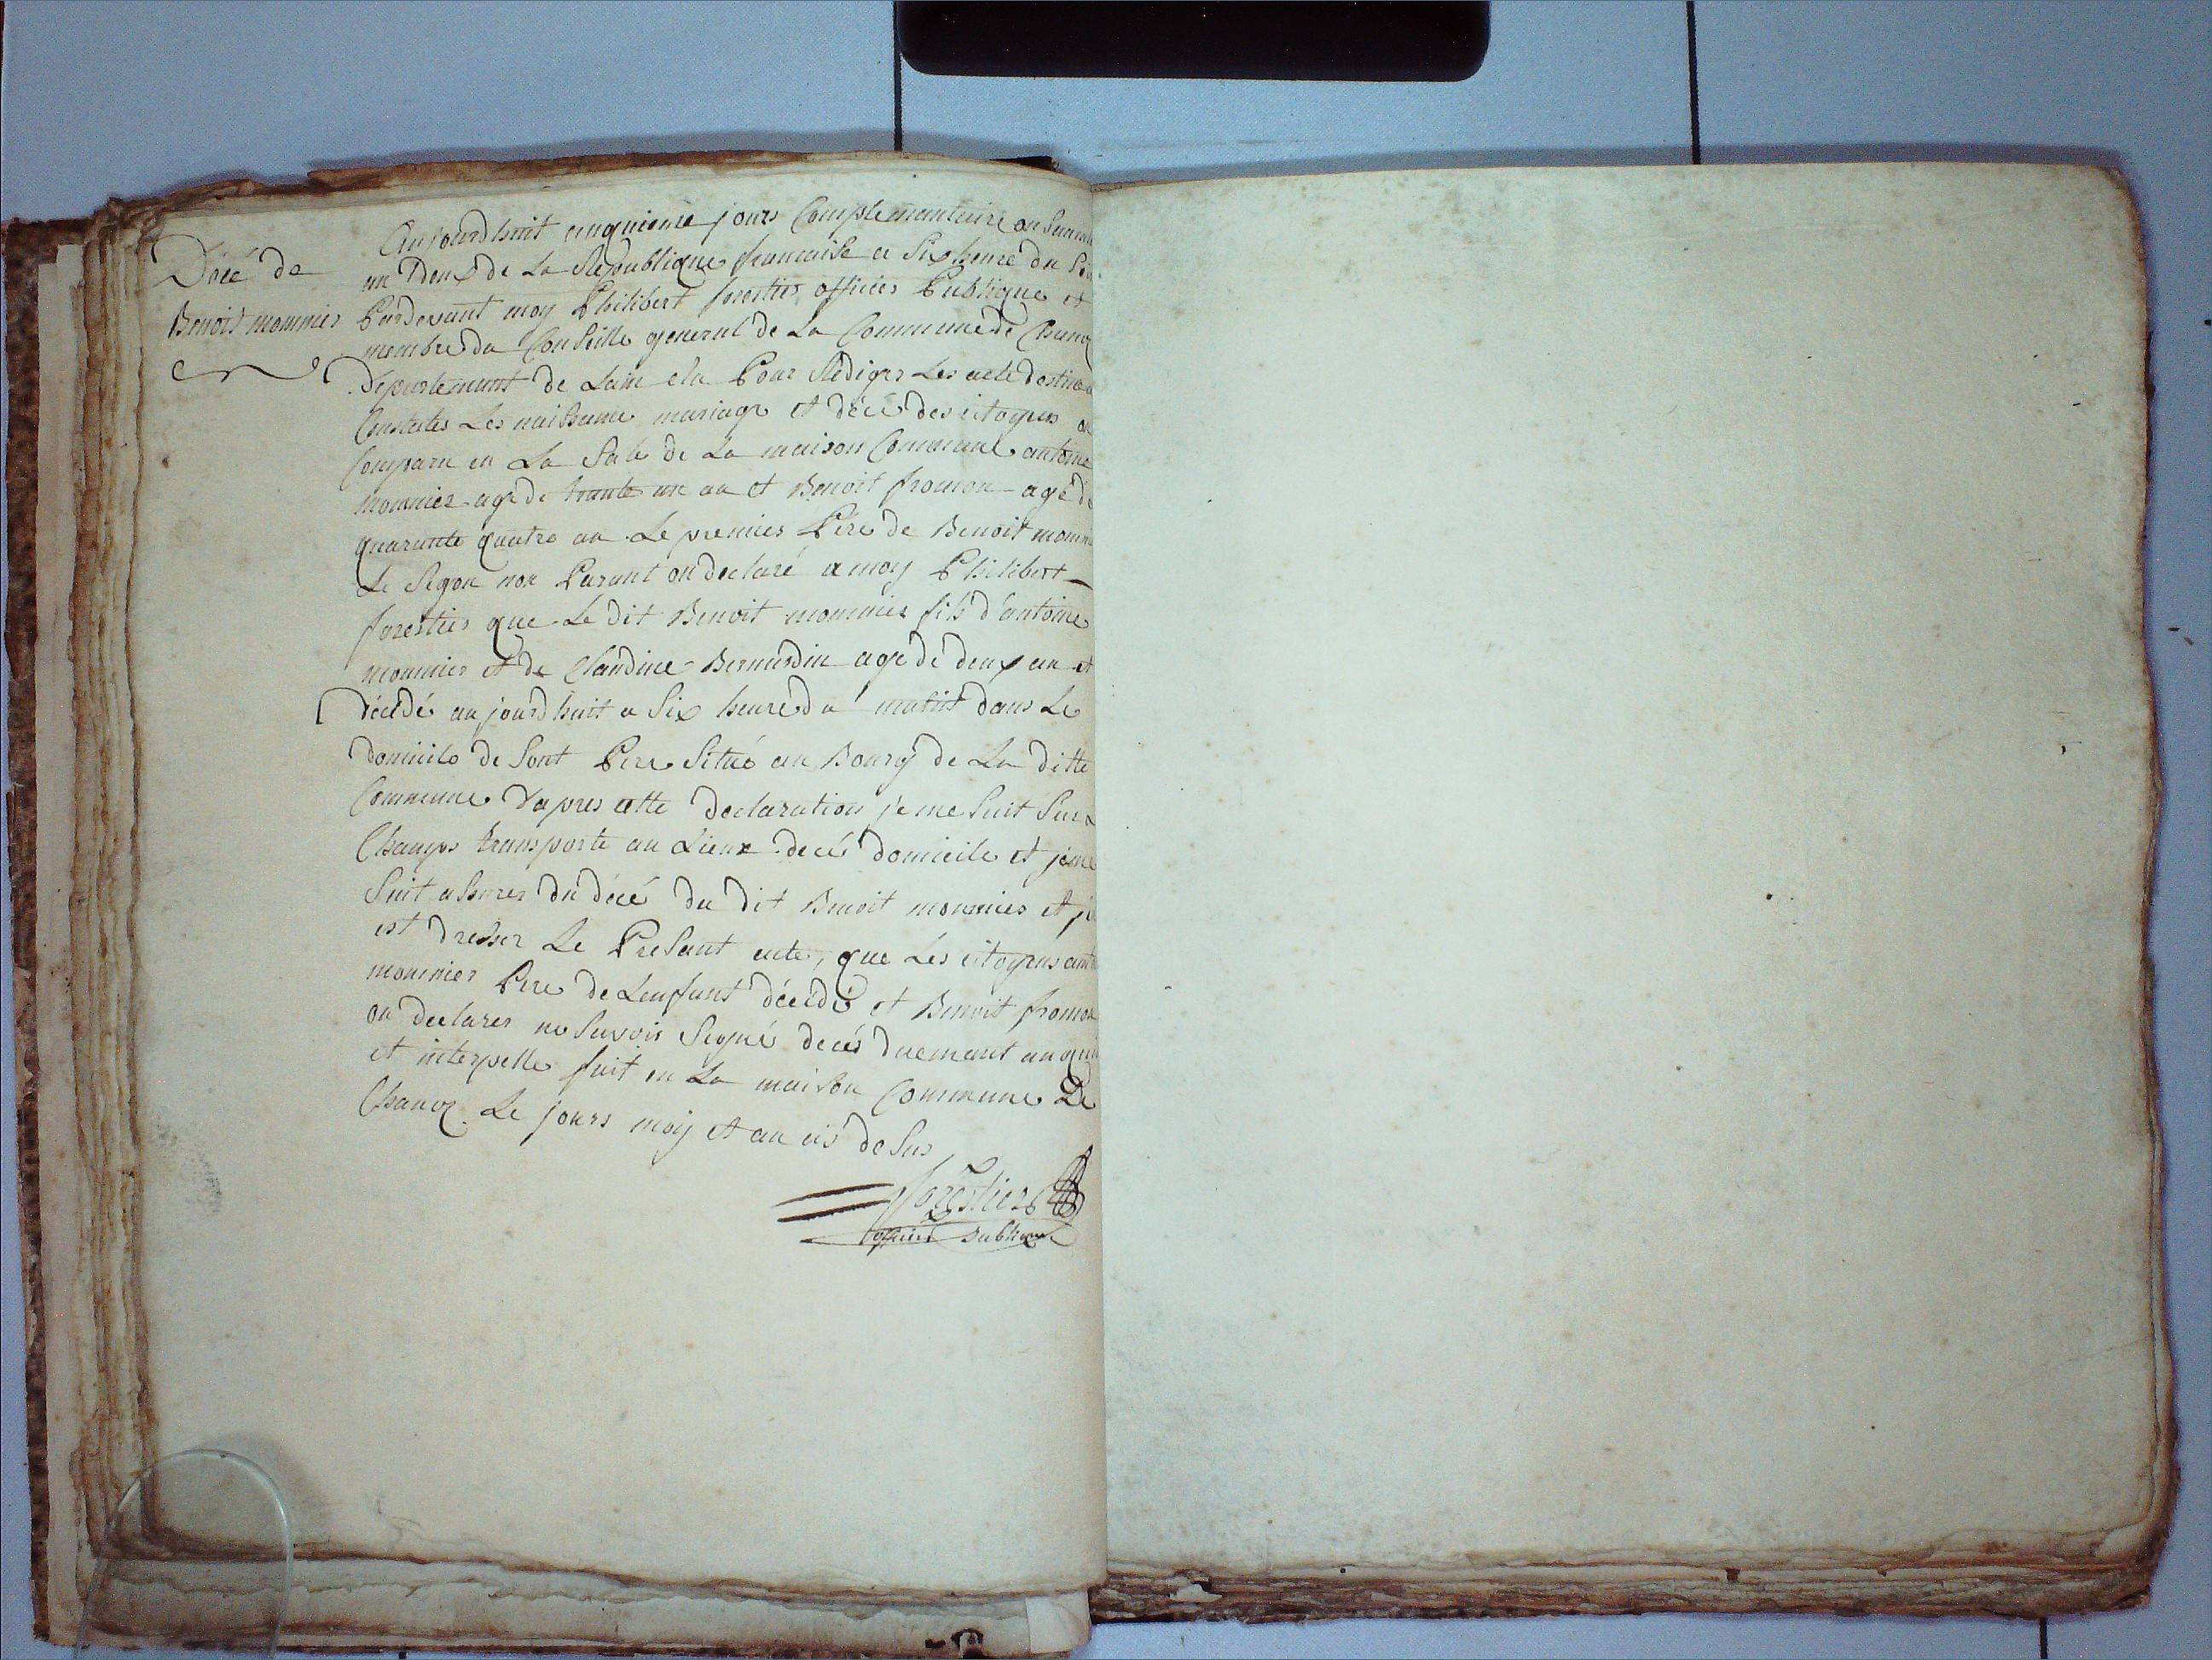 Décé de
Benoit monnier
Aujourdhuit cinquieme jours Complementaire
an Deux de La Republique francaise a Six heure du Soir
Pardevant moy Philibert forestier officier Publique et
membre du Conseille general de La Commune de Chanoz
Departement de Lain elu Pour Rediger Les acte destiné a
Constater Les naissance mariage et décé des citoyens on
Comparu en La Sale de La maison Commune antoine
monnier age de trante un an et Benoit fromon agé de
quarante quatre an Le premier Pere de Benoit monnier
Le Segon non Parant on declaré a moy Philibert
forestier que Le dit Benoit monnier fils d'antoine
monnier et de Claudine Bernardin age de deux an et
décédé aujourdhuit a Six heure du matint dans Le
domicile de Sont Pere Situé au Bourg de La ditte
Commune dapres cette declaration je me Suit Sur
Champs transporte au Lieux de cé domicile et je me
Suit assurer du décé du dit Benoit monnier et j'e
est dresser Le Presant acte, que Les citoyens
monnier Pere de Lenfant décédé et Benoit fromon
on declarer ne Savoir Signé de ces duemant
et interpelle fait en La maison Commune De
Chanoz Le jours moy et an cis de Sus
forestier
officier Publique